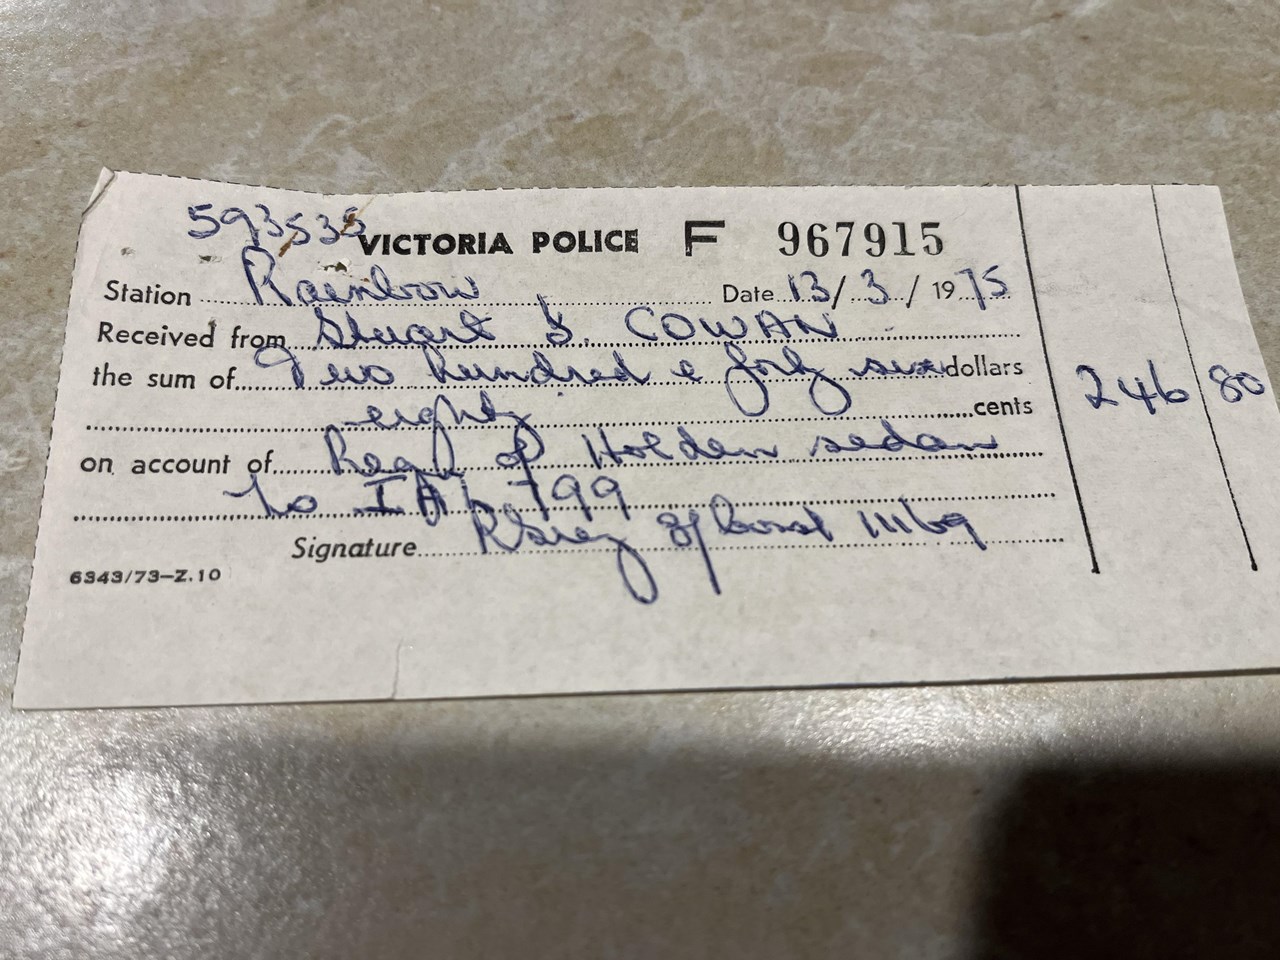 593535
VICTORIA POLICE F 967915
Station Rainbow Date 13/3/1975
Received from Stuart COWAN
the sum of Two hundred & forty six dollars 246 80
eighty cents
on account of Reg of Holden sedan
to 799
Signature 16169
6343/73-Z.10